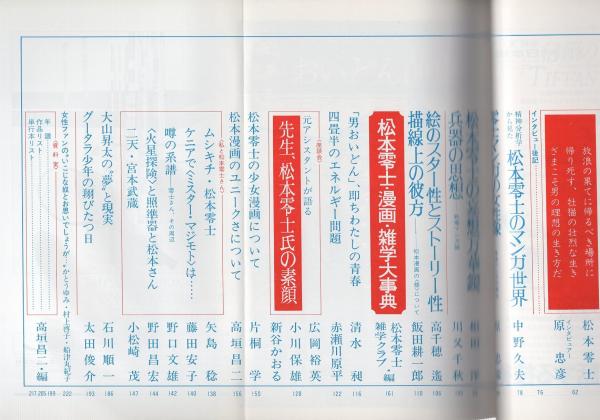 放浪の果てに帰るべき場所に
帰り死す、牡猫の壮烈な生き
ざまこそ男の理想の生き方だ
松本零士
インタビュアー
原 忠彦
62
76
インタビュー後記
精神分析学から見た
松本零士のマンガ世界
中野久夫
18
兵器の思想
川又千秋
絵のスター性とストーリー性
高千穂 遙
描線上の彼方
飯田耕一郎
松本零士・漫画・雑学大事典
松本零士雑学クラブ・編
161
「男おいどん」、即ちわたしの青春
清水 昶
116
四畳半のエネルギー問題
赤瀬川原平
122
〈座談会〉
元アシスタントが語る
先生、松本零士氏の素顔
広岡裕英
小川保雄
新谷かおる
128
松本零士の少女漫画について
片桐 学
150
松本漫画のユニークさについて
高垣昌二
156
〈私と松本零士さん〉
ムシキチ・松本零士
矢島 稔
138
ケニアで〈ミスター・マジモト〉は……
藤田安子
140
噂の系譜
零士さん、その周辺
野口文雄
142
〈火星探険〉と照準器と松本さん
野田昌宏
144
二天・宮本武蔵
小松崎 茂
147
大山昇太の〝夢〟と現実
石川順一
186
グータラ少年の翔びたつ日
太田俊介
193
女性ファンの〝いごこち良とお思いでしょうが…〟
かとうゆみ・村上啓子・船津丸紀子
222
〈資料室〉
年譜
作品リスト
単行本リスト
高垣昌二・編
217・205・199